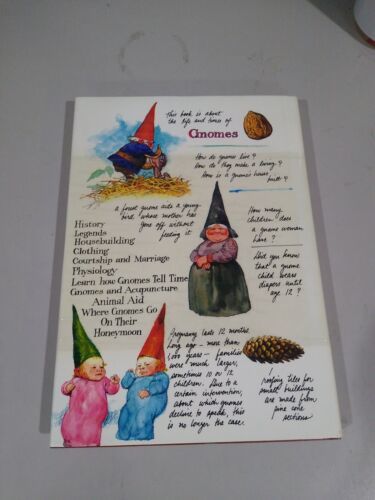 This book is about
the life and times of
Gnomes
How do gnomes live?
How do they make a living?
How is a gnome's house
built?
a forest gnome aids a young
bird whose mother has
gone off without
feeding it
How many
children does
a gnome woman
have?
Did you know
that a gnome
child wears
diapers until
age 12?
History
Legends
Housebuilding
Clothing
Courtship and Marriage
Physiology
Learn how Gnomes Tell Time
Gnomes and Acupuncture
Animal Aid
Where Gnomes Go
On Their
Honeymoon
Pregnancy lasts 12 months.
Long ago - more than
1,000 years - families
were much larger,
sometimes 10 or 12
children. Due to a
certain intervention,
about which gnomes
decline to speak, this
is no longer the case.
roofing tiles for
small buildings
are made from
pine cone
sections